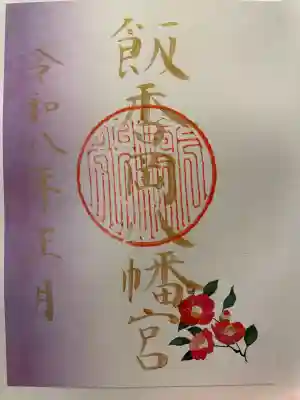 飯香岡八幡宮
令和八年正月